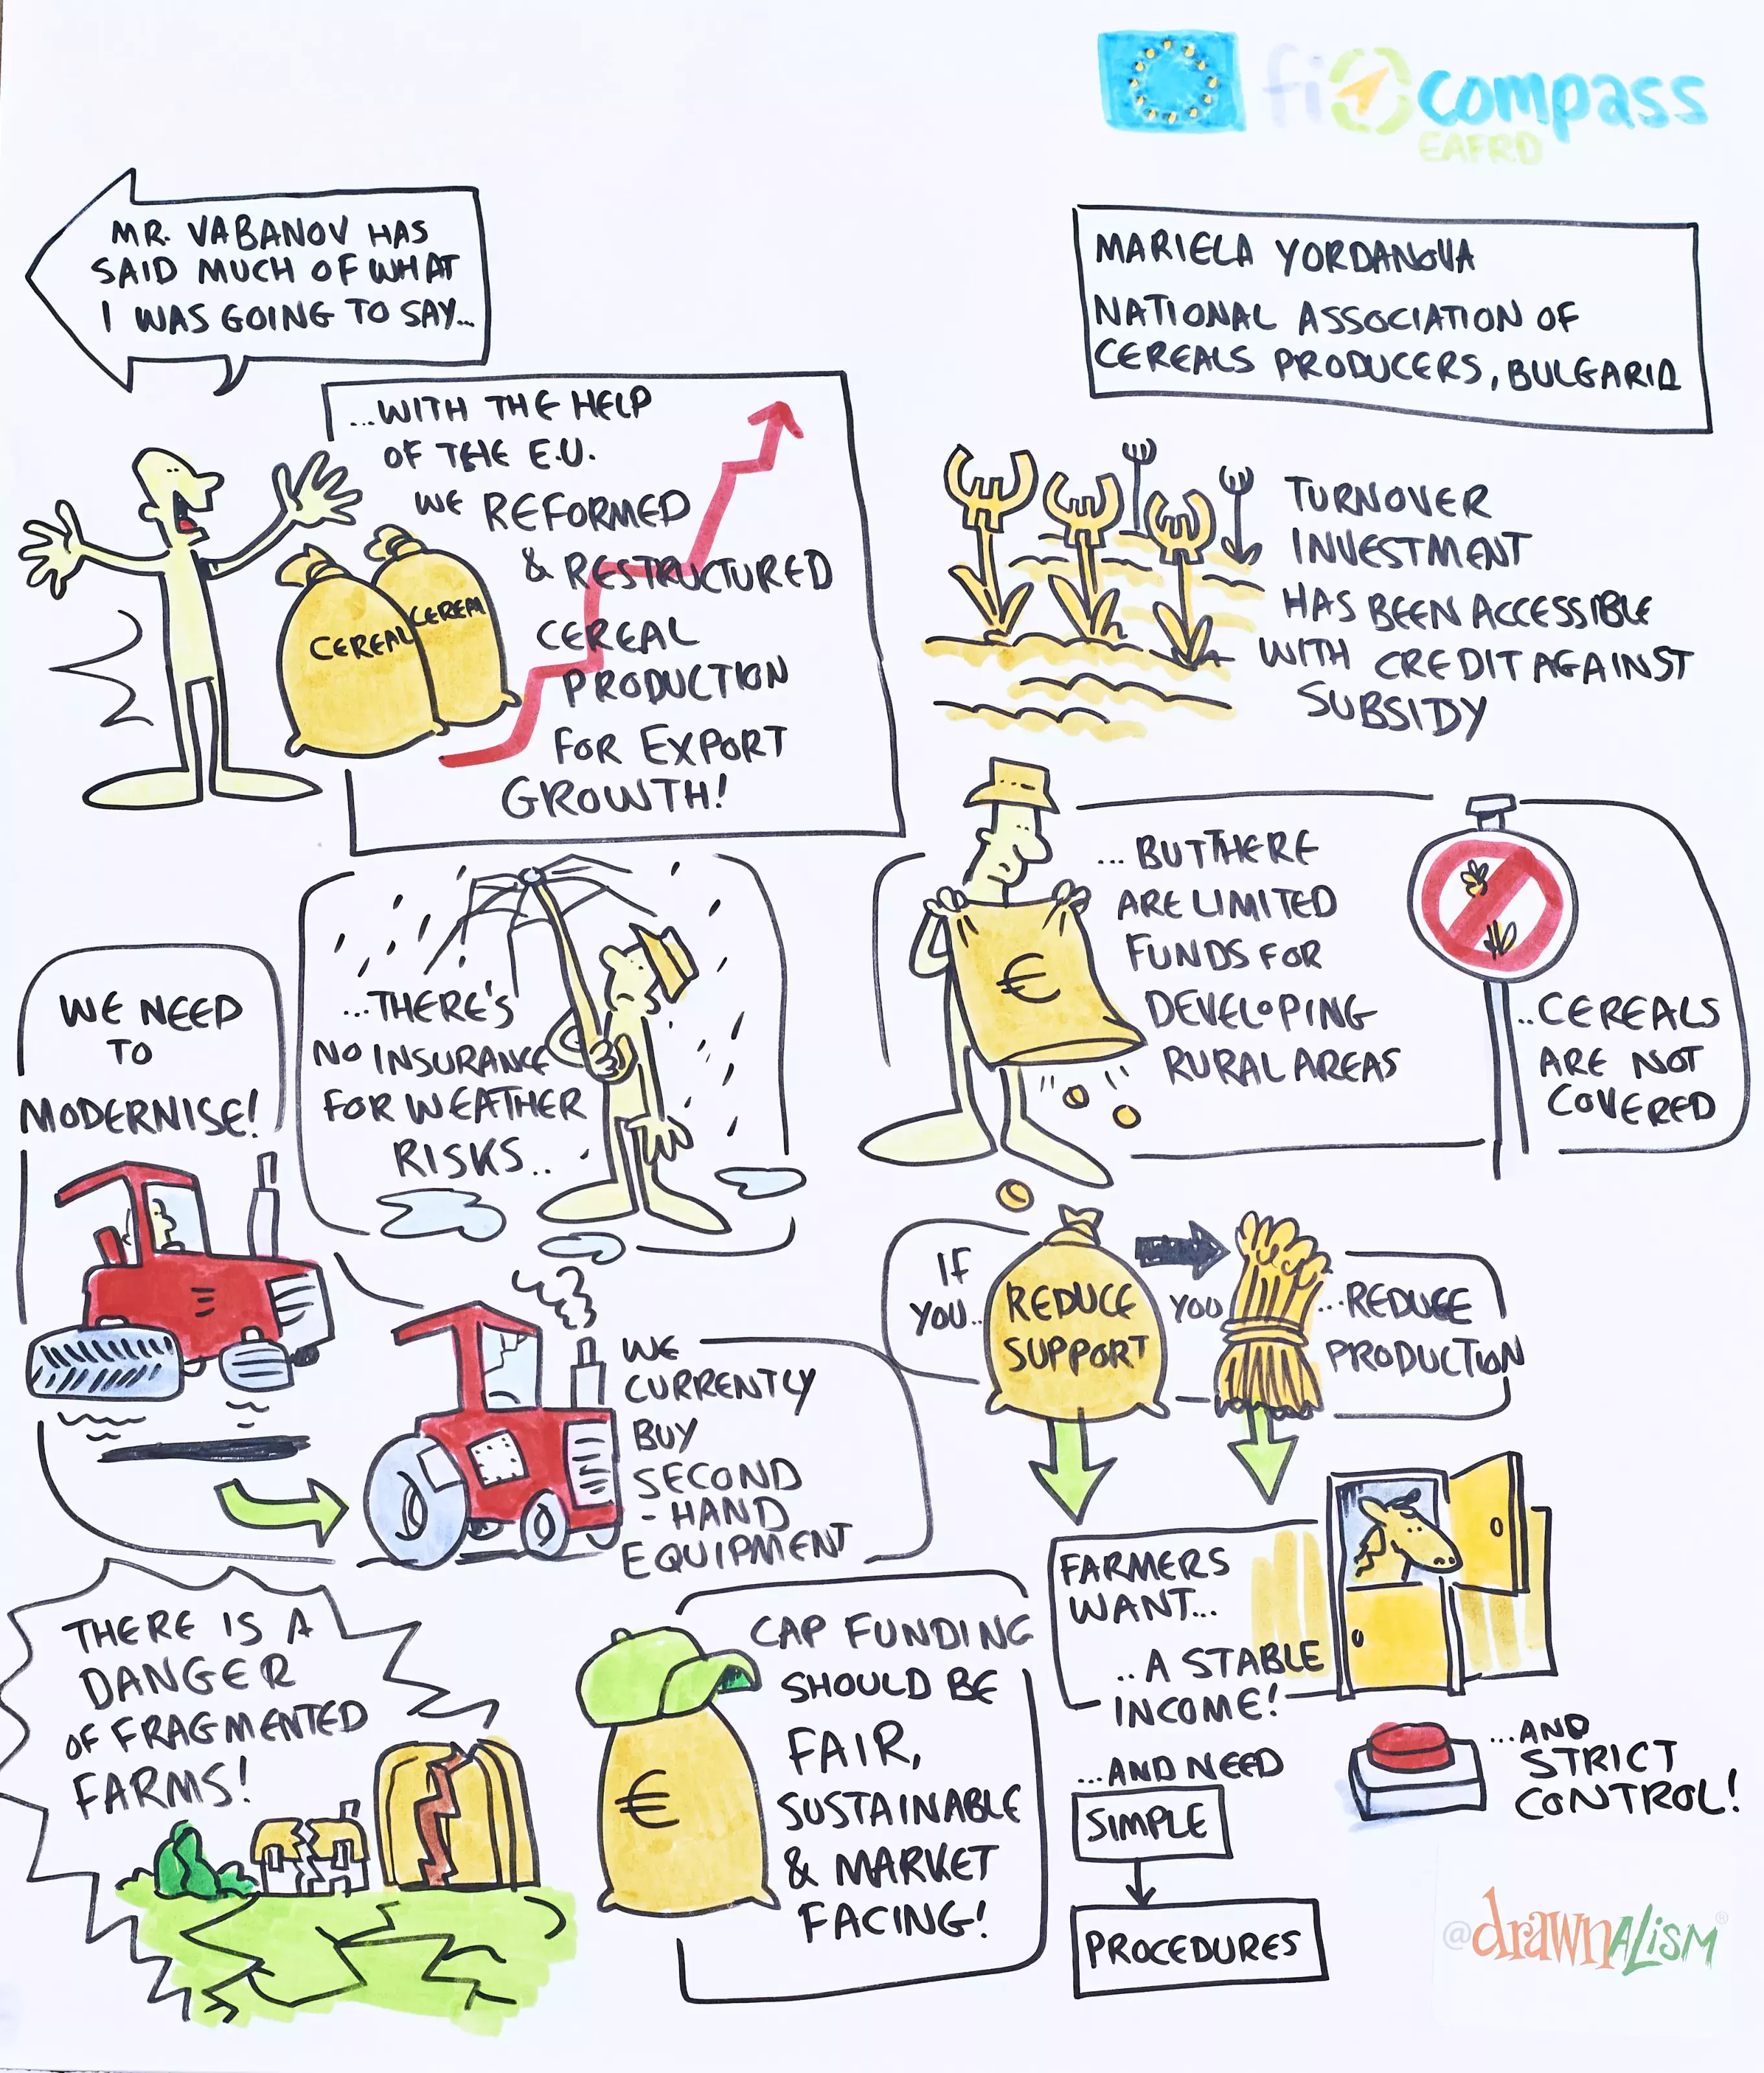 fi compass
EAFRD
MR. VABANOV HAS
SAID MUCH OF WHAT
I WAS GOING TO SAY...
MARIELA YORDANOVA
NATIONAL ASSOCIATION OF
CEREALS PRODUCERS, BULGARIA
...WITH THE HELP
OF THE E.U.
WE REFORMED
& RESTRUCTURED
CEREAL
PRODUCTION
FOR EXPORT
GROWTH!
CEREAL
CEREAL
TURNOVER
INVESTMENT
HAS BEEN ACCESSIBLE
WITH CREDIT AGAINST
SUBSIDY
... BUT THERE
ARE LIMITED
FUNDS FOR
DEVELOPING
RURAL AREAS
€
..CEREALS
ARE NOT
COVERED
WE NEED
TO
MODERNISE!
...THERE'S
NO INSURANCE
FOR WEATHER
RISKS..
WE
CURRENTLY
BUY
SECOND
- HAND
EQUIPMENT
IF
YOU..
REDUCE
SUPPORT
YOU
...REDUCE
PRODUCTION
THERE IS A
DANGER
OF FRAGMENTED
FARMS!
CAP FUNDING
SHOULD BE
FAIR,
SUSTAINABLE
& MARKET
FACING!
€
FARMERS
WANT...
..A STABLE
INCOME!
...AND NEED
SIMPLE
PROCEDURES
...AND
STRICT
CONTROL!
@drawnALiSM